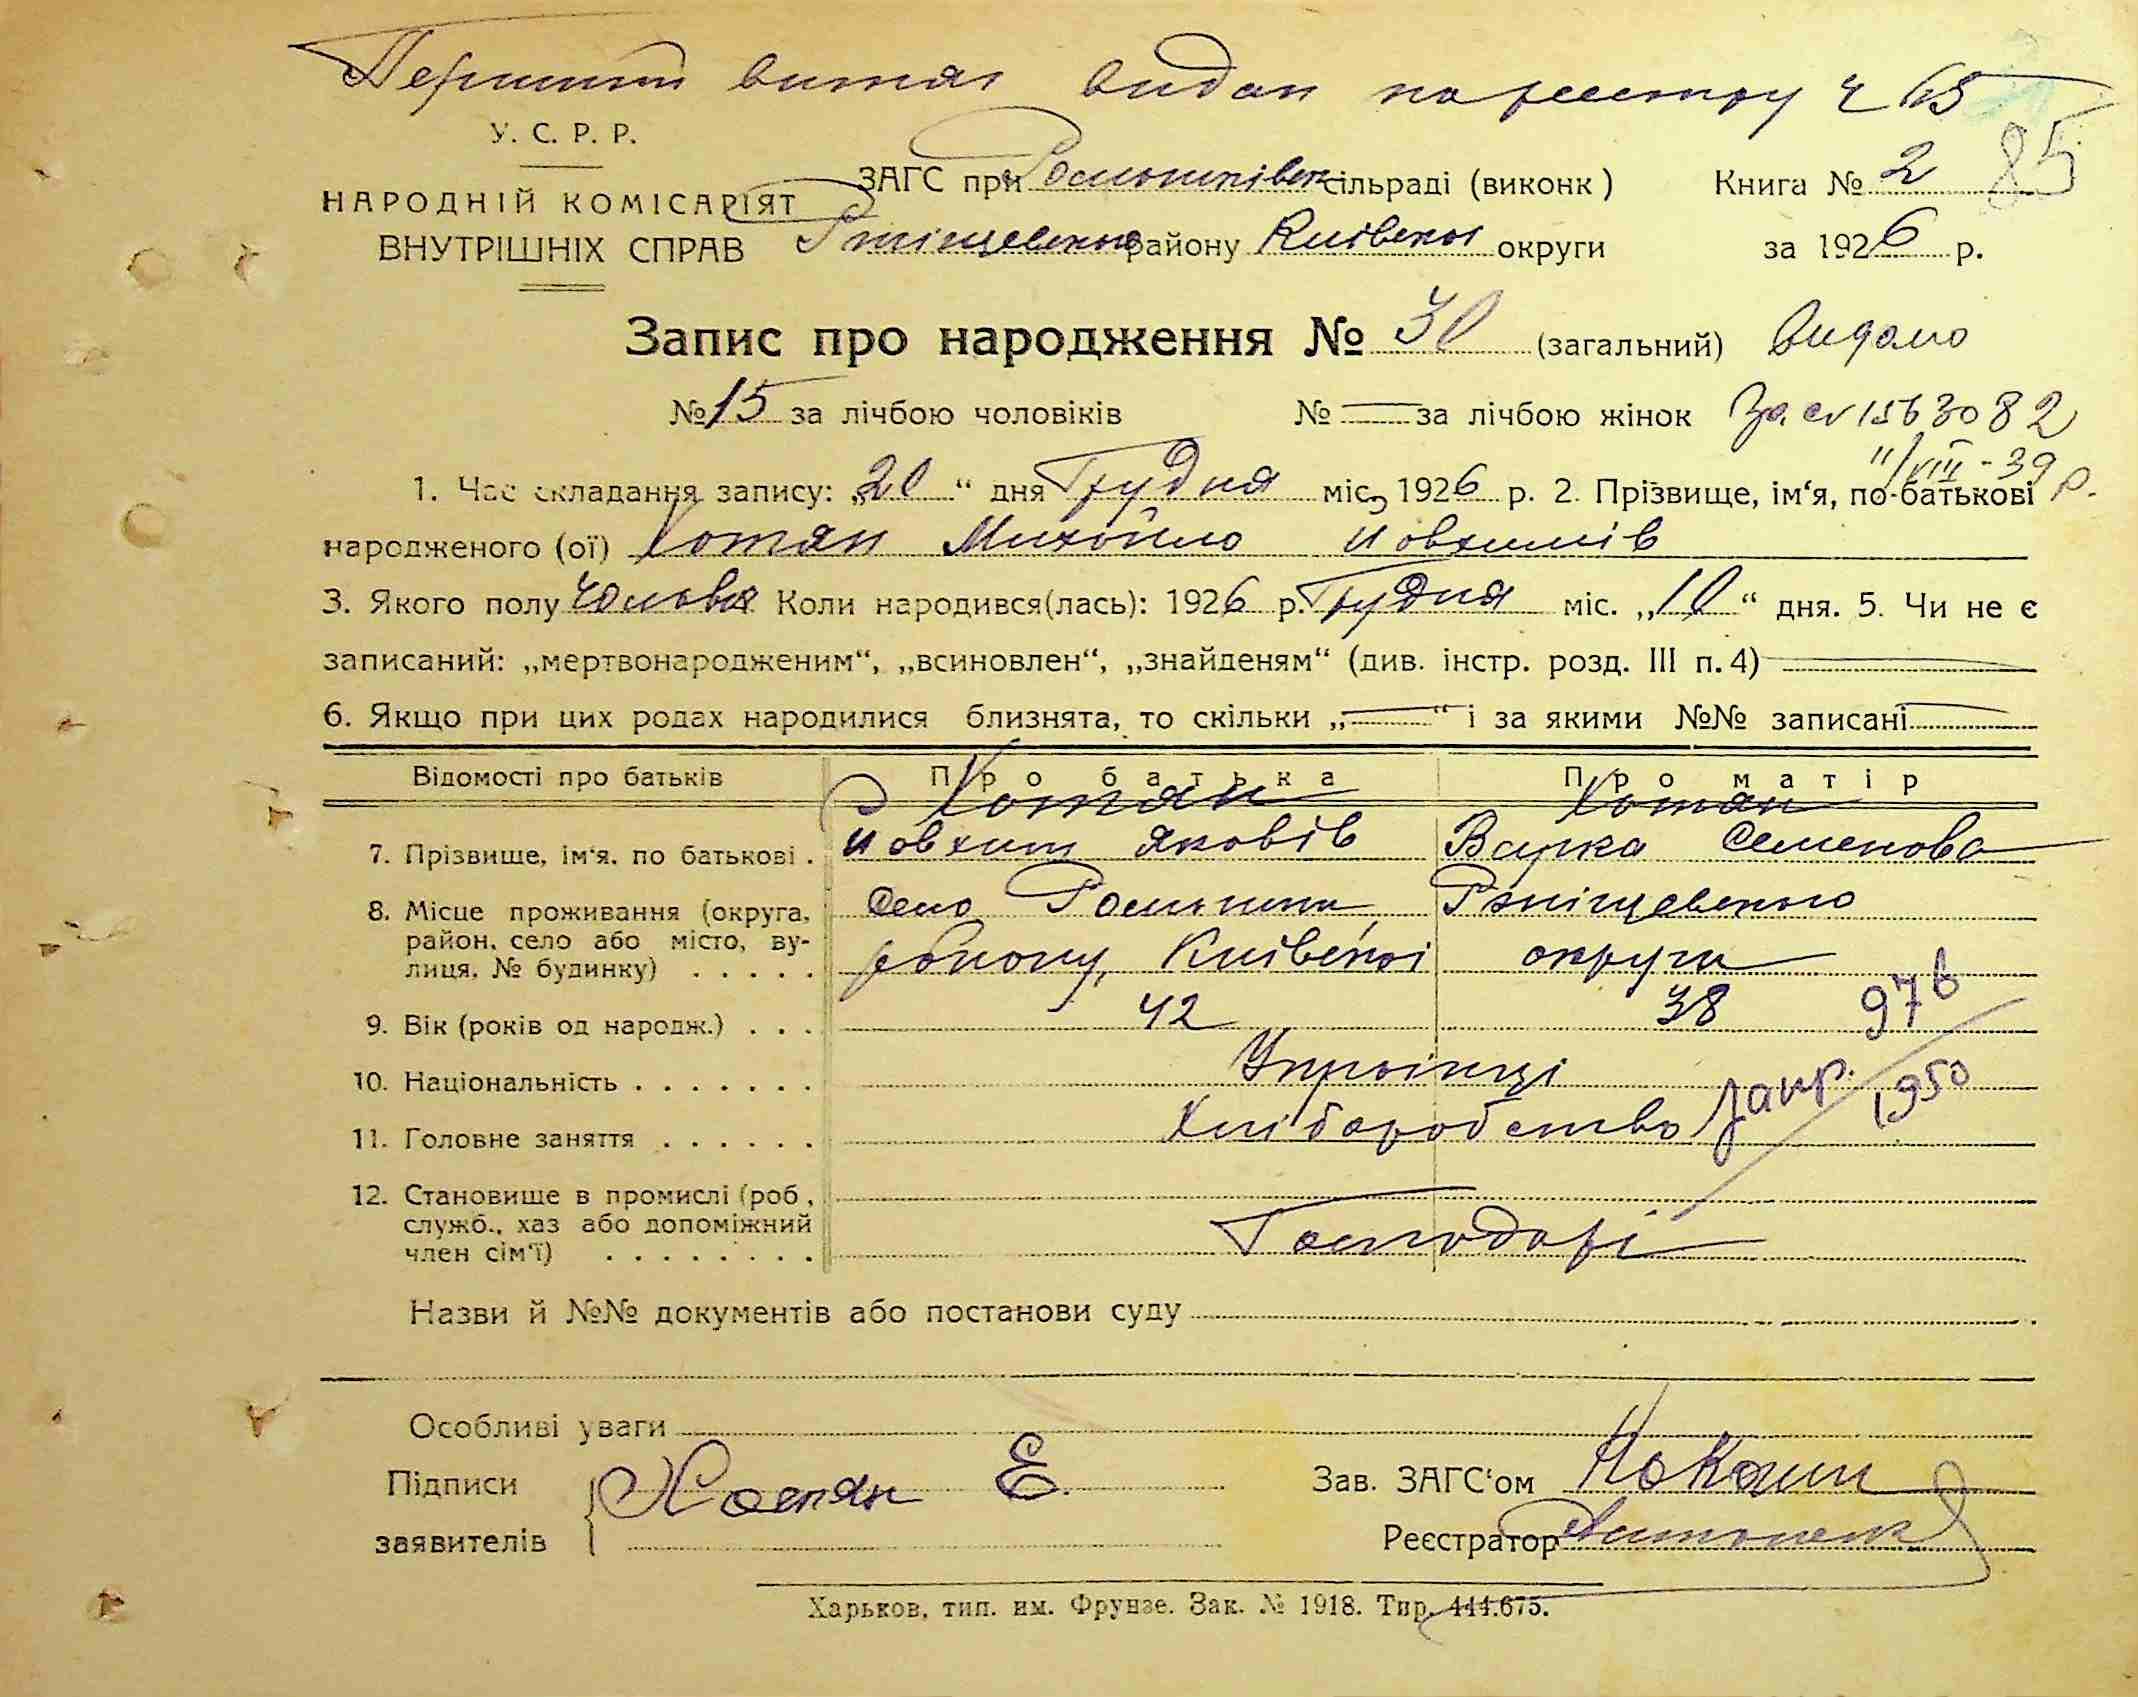 Перший витяг видан по реєстру ч 65
У. С. Р. Р.
85
ЗАГС при Ромашківск сільраді (виконк) Книга № 2
НАРОДНІЙ КОМІСАРІЯТ
ВНУТРІШНІХ СПРАВ
району Київської округи за 1926 р.
Запис про народження № 30 (загальний) Видано
№ 15 за лічбою чоловіків № — за лічбою жінок
1563082
11/VIII-39 р.
1. Час складання запису: „20“ дня Грудня міс, 1926 р. 2. Прізвище, ім‘я, по-батькові
народженого (ої) Хотян Михайло Иовхимів
3. Якого полу Коли народився(лась): 1926 р. Грудня міс. „10“ дня. 5. Чи не є
записаний: „мертвонародженим“, „всиновлен“, „знайденям“ (див. інстр. розд. III п. 4) —
6. Якщо при цих родах народилися близнята, то скільки „—“ і за якими №№ записані —
Відомості про батьків Про батька Про матір
Хотян Хотян
7. Прізвище, ім‘я, по батькові . Иовхим Яковів Варка Семенова
8. Місце проживання (округа, Село Ромашки
район, село або місто, ву-
лиця, № будинку) . . . . . району, Київської округи
9. Вік (років од народж.) . . . 42 38
976
10. Національність . . . . . . . Українці
1950
11. Головне заняття . . . . . . Хліборобство
12. Становище в промислі (роб,
служб., хаз або допоміжний
член сім‘ї) . . . . . . . . Господарі
Назви й №№ документів або постанови суду
Особливі уваги
Підписи Хотян Е. Зав. ЗАГС‘ом
заявителів Реєстратор
Харьков, тип. им. Фрунзе. Зак. № 1918. Тир. 444.675.